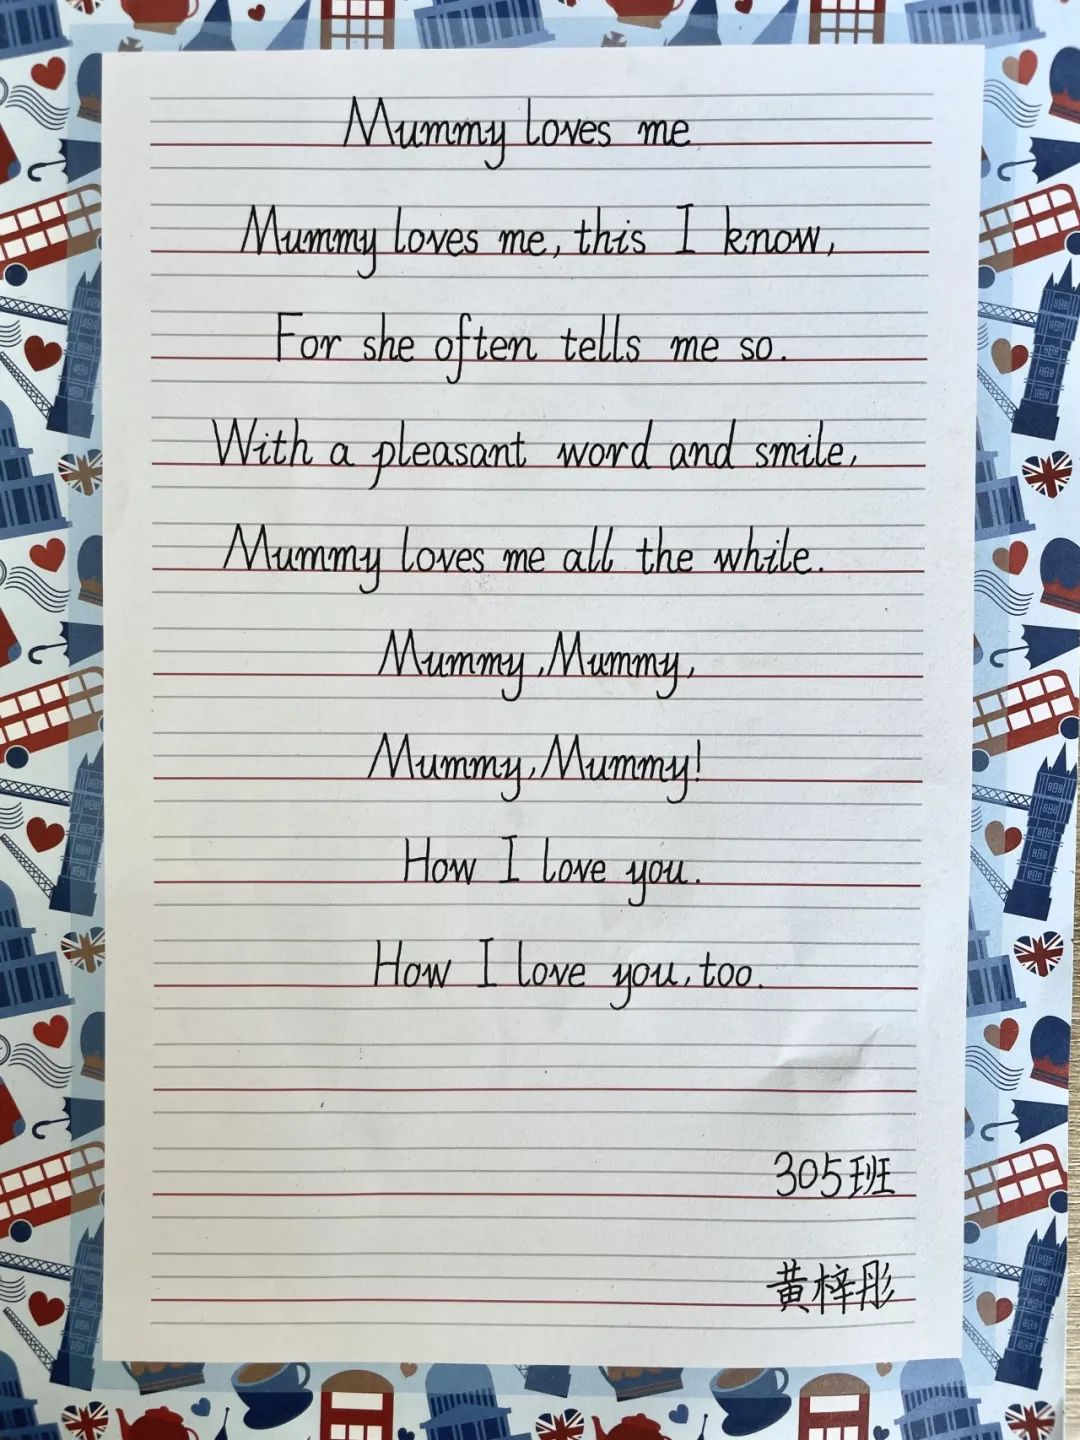 Mummy loves me
Mummy loves me, this I know,
For she often tells me so.
With a pleasant word and smile,
Mummy loves me all the while.
Mummy, Mummy,
Mummy, Mummy!
How I love you.
How I love you, too.
305班
黄梓彤